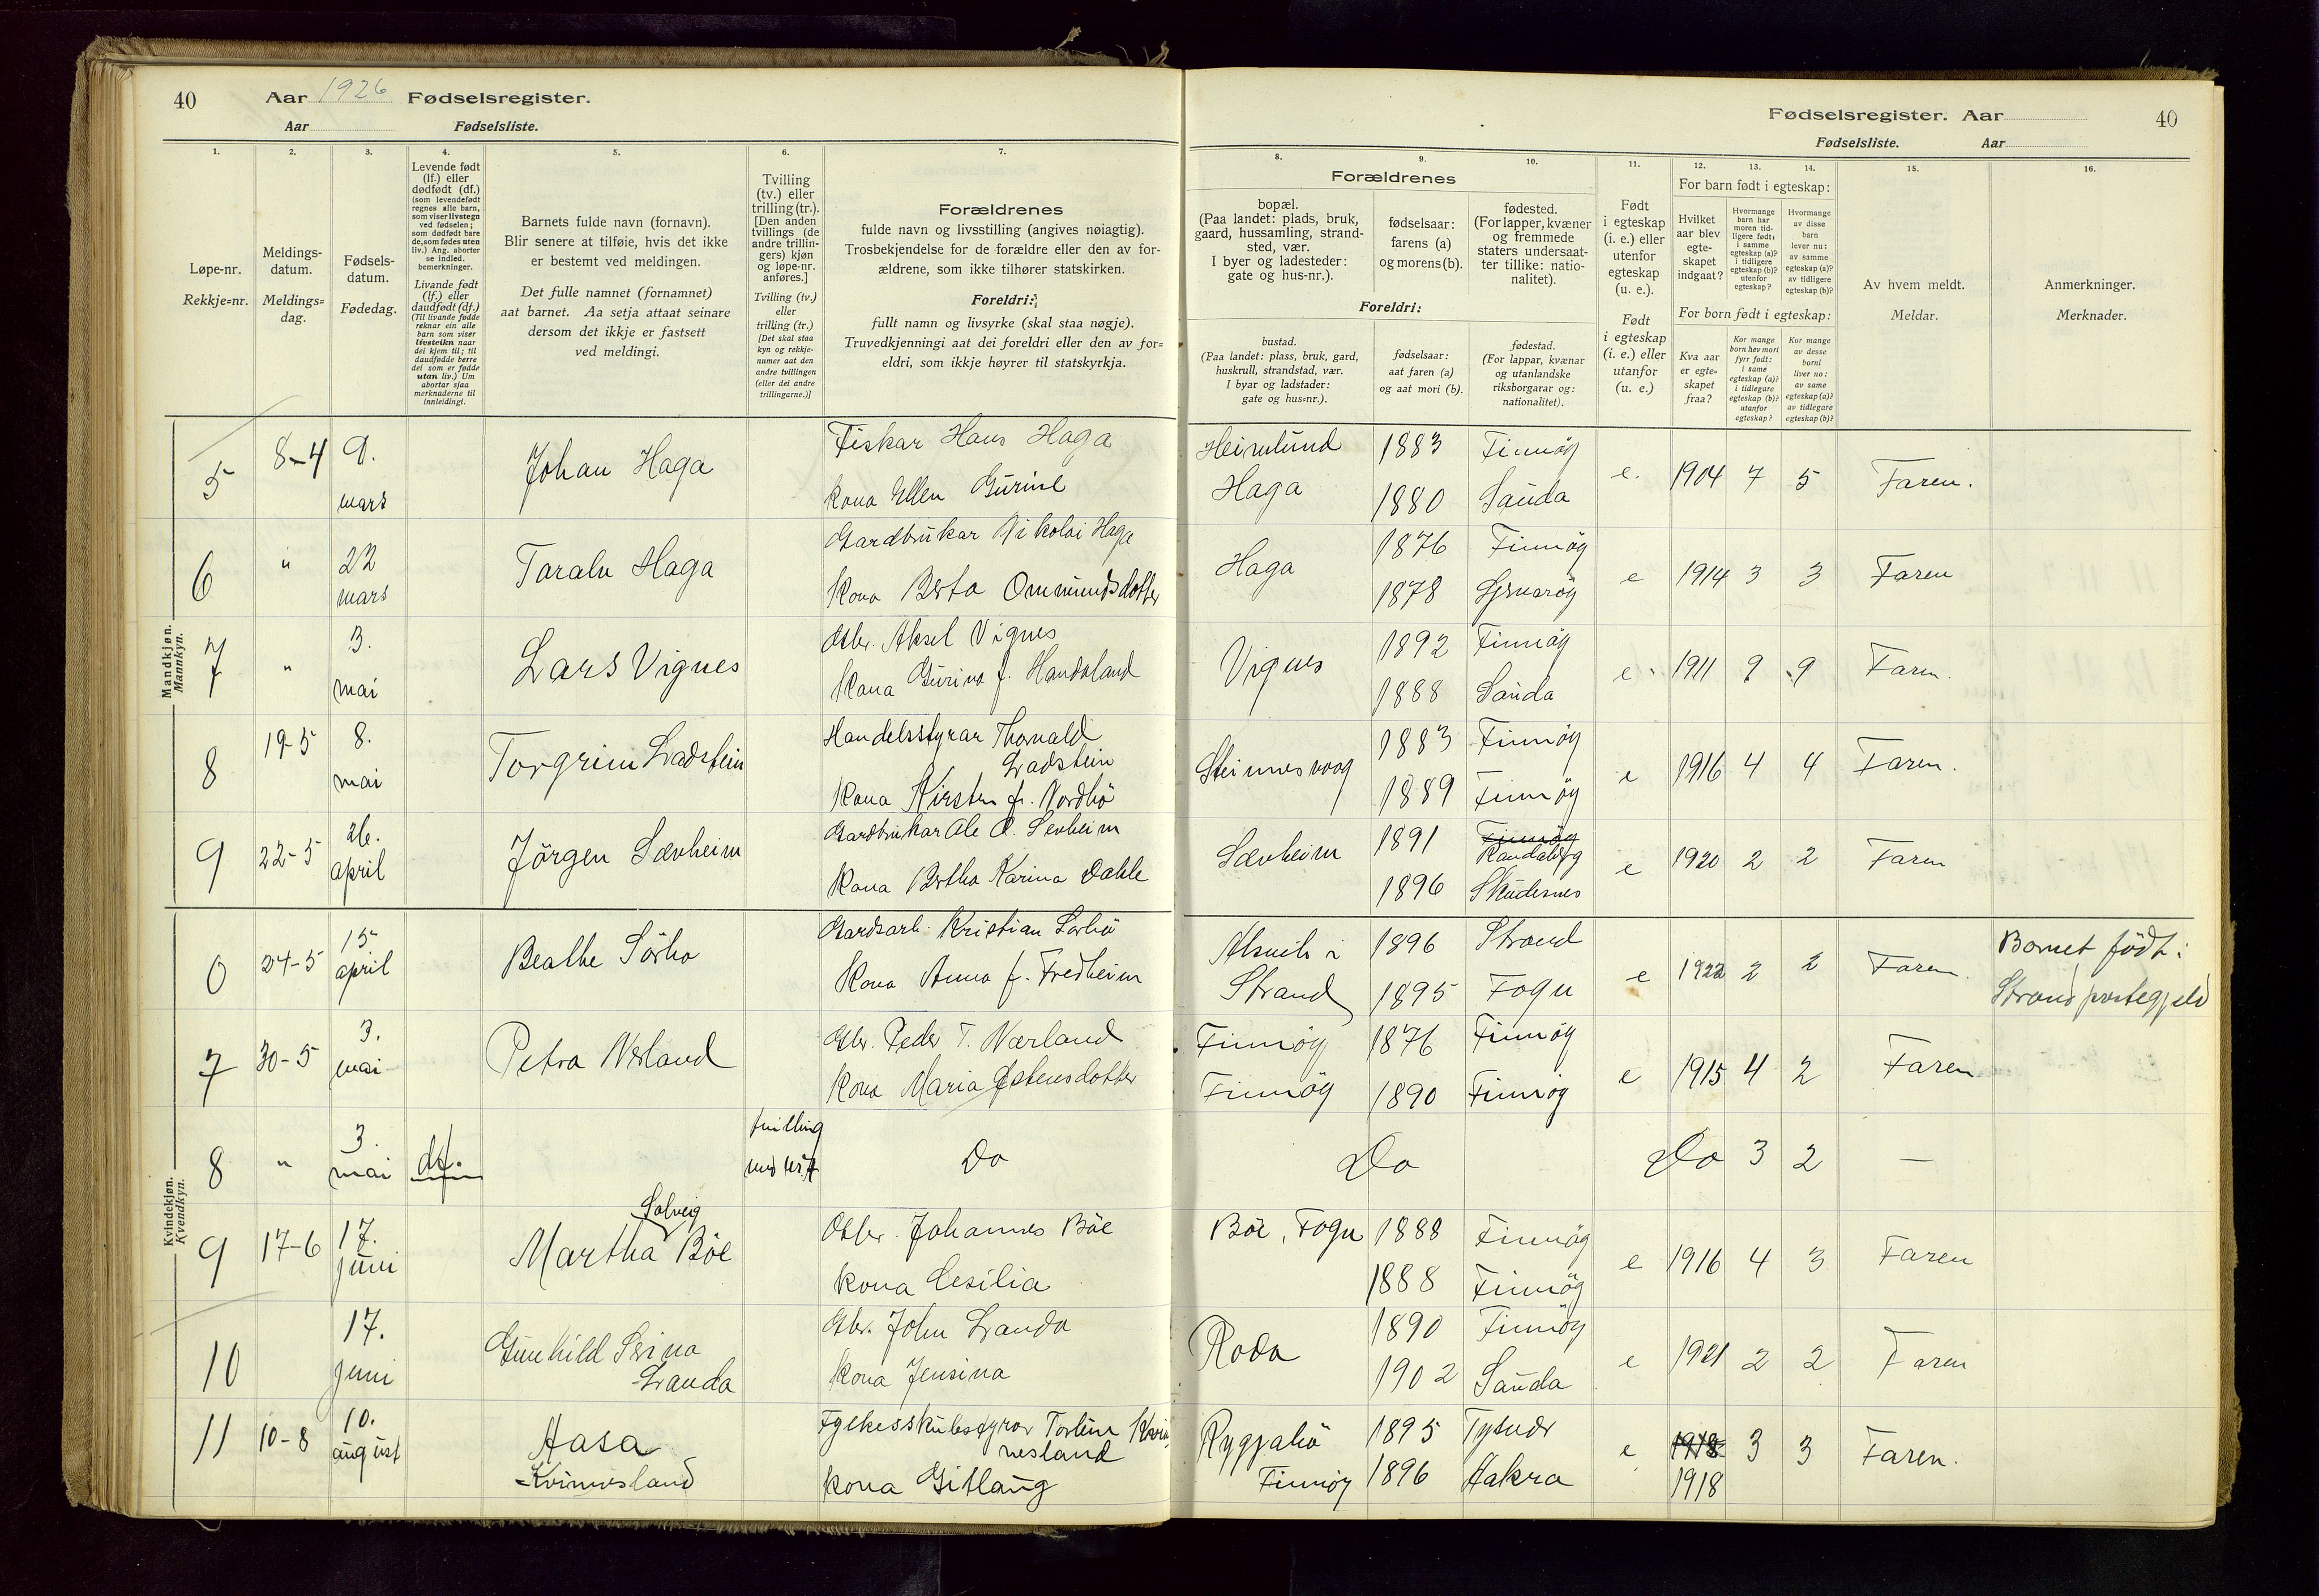 40 Aar 1926 Fødselsregister.
Aar Fødselsliste.
Fødselsregister. Aar 40
Fødselsliste. Aar
1. 2. 3. 4. 5. 6. 7. 8. 9. 10. 11. 12. 13. 14. 15. 16.
Løpe-nr.
Rekkje-nr.
Meldings-
datum.
Meldings-
dag.
Fødsels-
datum.
Fødedag.
Levende født
(lf.) eller
dødfødt (df.)
(som levendefødt
regnes alle barn,
som viser livstegn
ved fødselen;
som dødfødt bare
de, som fødes uten
liv.) Ang. aborter
se indled.
bemerkninger.
Livande født
(lf.) eller
daudfødt (df.)
(Til livande fødde
reknar ein alle
barn som viser
livsteikn naar
dei kjem til; til
daudfødde berre
dei som er fødde
utan liv.) Um
abortar sjaa
merknaderne til
innleidingi.
Barnets fulde navn (fornavn).
Blir senere at tilføie, hvis det ikke
er bestemt ved meldingen.
Det fulle namnet (fornamnet)
aat barnet. Aa setja attaat seinare
dersom det ikkje er fastsett
ved meldingi.
Tvilling
(tv.) eller
trilling (tr.).
[Den anden
tvillings (de
andre trillin-
gers) kjøn
og løpe-nr.
anføres.]
Tvilling (tv.)
eller
trilling (tr.)
[Det skal staa
kyn og rekkje-
numer aat den
andre tvillingen
(eller dei andre
trillingarne.)]
Forældrenes
fulde navn og livsstilling (angives nøiagtig).
Trosbekjendelse for de forældre eller den av for-
ældrene, som ikke tilhører statskirken.
Foreldri:
fullt namn og livsyrke (skal staa nøgje).
Truvedkjenningi aat dei foreldri eller den av for-
eldri, som ikkje høyrer til statskyrkja.
Forældrenes
bopæl.
(Paa landet: plads, bruk,
gaard, hussamling, strand-
sted, vær.
I byer og ladesteder:
gate og hus-nr.).
fødselsaar:
farens (a)
og morens (b).
fødested.
(For lapper, kvæner
og fremmede
staters undersaat-
ter tillike: natio-
nalitet).
Foreldri:
bustad.
(Paa landet: plass, bruk, gard,
huskrull, strandstad, vær.
I byar og ladstader:
gate og hus-nr.).
fødselsaar:
aat faren (a)
og aat mori (b).
fødestad.
(For lappar, kvænar
og utanlandske
riksborgarar og:
nationalitet).
Født
i egteskap
(i. e.) eller
utenfor
egteskap
(u. e.).
Født
i egteskap
(i. e.) eller
utanfor
(u. e.)
For barn født i egteskap:
Hvilket
aar blev
egte-
skapet
indgaat?
Hvormange
barn har
moren tid-
ligere født:
i samme
egteskap (a)?
i tidligere
egteskap (b)?
utenfor
egteskap?
Hvormange
av disse
barn
lever nu:
av samme
egteskap (a)?
av tidligere
egteskap (b)?
For born født i egteskap:
Kva aar
er egte-
skapet
fraa?
Kor mange
born hev mori
fyrr født:
i same
egteskap (a)?
i tidlegare
egteskap (b)?
utanfor
egteskap?
Kor mange
av desse
borni
liver no:
av same
egteskap (a)?
av tidlegare
egteskap (b)?
Av hvem meldt.
Meldar.
Anmerkninger.
Merknader.
Mandkjøn.
Mannkyn.
5 8-4 9. mars Johan Haga
Fiskar Hans Haga
Kona Ellen Gurine
Heimlund 1883 Finnöy
Haga 1880 Sauda
e. 1904 7 5 Faren.
6 " 22 mars Taralv Haga
Gardbrukar Nikolai Haga
Kona Berta Ommundsdotter
Haga 1876 Finnöy
1878 Sjernaröy
e 1914 3 3 Faren
7 " 3. mai Lars Vignes
Gbr. Aksel Vignes
Kona Gurina f. Handeland
Vignes 1892 Finnöy
1888 Sauda
e 1911 9 9 Faren.
8 19-5 8. mai Torgrim Ladstein
Handelsstyrar Thorvald
Ladstein
Kona Kirsten f. Nordbö
Steinnesvaag 1883 Finnöy
1889 Finnöy
e 1916 4 4 Faren.
9 22-5 26. april Jörgen Sævheim
Gardbrukar Ole O. Sevheim
Kona Bertha Karina Dahle
Sævheim 1891 Finnöy
Randaberg
1896 Skudesnes
e 1920 2 2 Faren
Kvindekjøn.
Kvendkyn.
6 24-5 15. april Beathe Sörbo
Gardsarb. Kristian Sörbö
Kona Anna f. Fredheim
i 1896 Strand
Strand 1895 Fogn
e 1922 2 2 Faren.
Barnet födt i
Strand prestegjeld
7 30-5 3. mai Petra Nerland
Gbr. Peder T. Nærland
Kona Maria Østensdotter
Finnöy 1876 Finnöy
Finnöy 1890 Finnöy
e 1915 4 2 Faren
8 " 3. mai df.
tvilling
med nr. 7
Do
Do Do 3 2 —
9 17-6 17. juni
Solveig
Martha Böe
Gbr. Johannes Böe
Kona Cesilia
Böe, Fogn 1888 Finnöy
1888 Finnöy
e 1916 4 3 Faren
10 17. juni
Gunhild Serina
Landa
Gbr. John Landa
Kona Jensina
Roda 1890 Finnöy
1902 Sauda
e 1921 2 2 Faren
11 10-8 10. august
Aasa
Kvinnesland
Fylkesskulestyrar Torleiv Kvin-
nesland
Kona Gitlaug
Ryggjabö 1895 Tysvær
Finnöy 1896 Aakra
e 1918 3 3 Faren.
1918